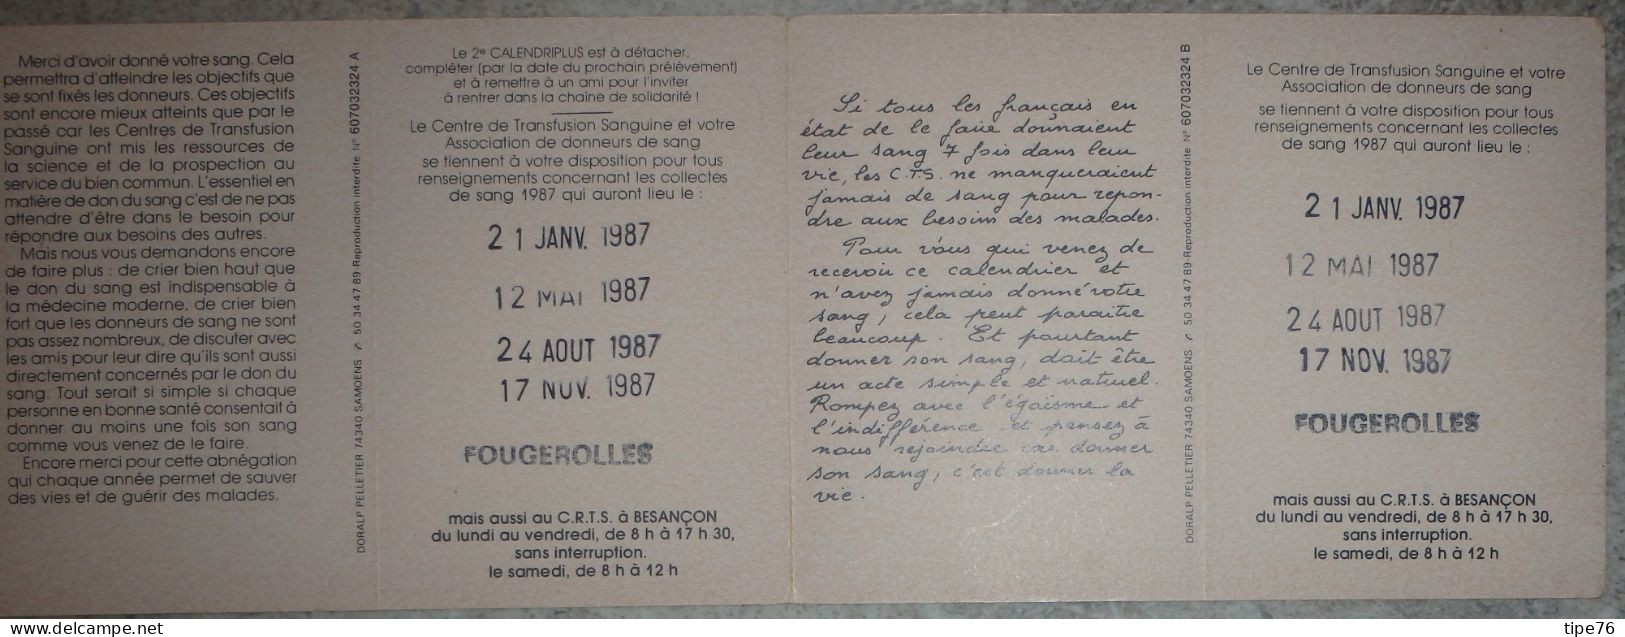 Merci d'avoir donné votre sang. Cela
permettra d'atteindre les objectifs que
se sont fixés les donneurs. Ces objectifs
sont encore mieux atteints que par le
passé car les Centres de Transfusion
Sanguine ont mis les ressources de
la science et de la prospection au
service du bien commun. L'essentiel en
matière de don du sang c'est de ne pas
attendre d'être dans le besoin pour
répondre aux besoins des autres.
Mais nous vous demandons encore
de faire plus : de crier bien haut que
le don du sang est indispensable à
la médecine moderne, de crier bien
fort que les donneurs de sang ne sont
pas assez nombreux, de discuter avec
les amis pour leur dire qu'ils sont aussi
directement concernés par le don du
sang. Tout serait si simple si chaque
personne en bonne santé consentait à
donner au moins une fois son sang
comme vous venez de le faire.
Encore merci pour cette abnégation
qui chaque année permet de sauver
des vies et de guérir des malades.
DORALP PELLETIER 74340 SAMOENS 50 34 47 89 - Reproduction interdite N° 607032324 A
Le 2e CALENDRIPLUS est à détacher,
compléter (par la date du prochain prélèvement)
et à remettre à un ami pour l'inviter
à rentrer dans la chaîne de solidarité !
Le Centre de Transfusion Sanguine et votre
Association de donneurs de sang
se tiennent à votre disposition pour tous
renseignements concernant les collectes
de sang 1987 qui auront lieu le :
21 JANV. 1987
12 MAI 1987
24 AOUT 1987
17 NOV. 1987
FOUGEROLLES
mais aussi au C.R.T.S. à BESANÇON
du lundi au vendredi, de 8 h à 17 h 30,
sans interruption.
le samedi, de 8 h à 12 h
Si tous les français en
état de le faire donnaient
leur sang 7 fois dans leur
vie, les C.T.S. ne manqueraient
jamais de sang pour repon-
dre aux besoins des malades.
Pour vous qui venez de
recevoir ce calendrier et
n'avez jamais donné votre
sang, cela peut paraître
beaucoup. Et pourtant
donner son sang, doit être
un acte simple et naturel.
Rompez avec l'égoïsme et
l'indifférence et pensez à
nous rejoindre car donner
son sang, c'est donner la
vie.
DORALP PELLETIER 74340 SAMOENS 50 34 47 89 - Reproduction interdite N° 607032324 B
Le Centre de Transfusion Sanguine et votre
Association de donneurs de sang
se tiennent à votre disposition pour tous
renseignements concernant les collectes
de sang 1987 qui auront lieu le :
21 JANV. 1987
12 MAI 1987
24 AOUT 1987
17 NOV. 1987
FOUGEROLLES
mais aussi au C.R.T.S. à BESANÇON
du lundi au vendredi, de 8 h à 17 h 30,
sans interruption.
le samedi, de 8 h à 12 h
www.delcampe.net
tipe76